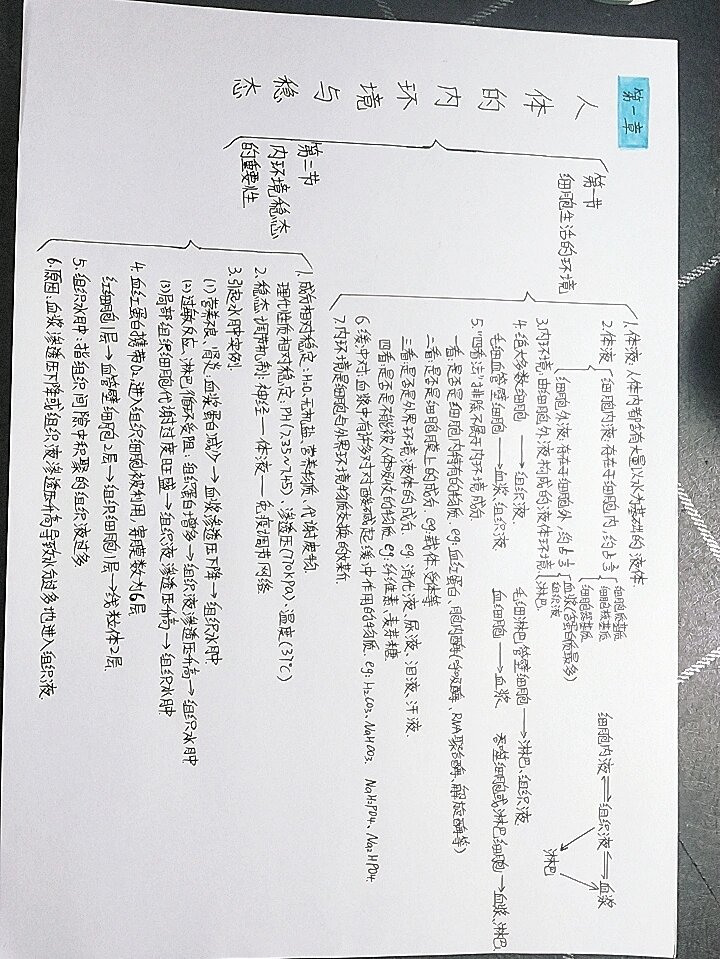 第一章
人体的内环境与稳态
第一节
细胞生活的环境
1.体液:人体内都含有大量以水为基础的液体
2.体液
细胞内液:存在于细胞内,约占2/3
细胞质基质
细胞核基质
细胞器基质
细胞外液:存在于细胞外,约占1/3
血浆(含蛋白质最多)
组织液
淋巴
细胞内液⇌组织液⇌血浆
淋巴
3.内环境:由细胞外液构成的液体环境
4.绝大多数细胞→组织液
毛细淋巴管壁细胞→淋巴、组织液
毛细血管壁细胞→血浆、组织液
血细胞→血浆
吞噬细胞或淋巴细胞→血浆、淋巴
5."四看法"排除不属于内环境成分
一看:是否是细胞内特有的物质. eg:血红蛋白、胞内酶(呼吸酶、RNA聚合酶、解旋酶等)
二看:是否是细胞膜上的成分. eg:载体、受体等
三看:是否是外界环境液体的成分. eg:消化液、尿液、泪液、汗液.
四看:是否是不能被人体吸收的物质. eg:纤维素、麦芽糖.
6.缓冲对:血浆中有许多对对酸碱起缓冲作用的物质. eg:H₂CO₃、NaHCO₃. NaH₂PO₄、Na₂HPO₄.
7.内环境是细胞与外界环境物质交换的媒介.
第二节
内环境稳态
的重要性
1.成分相对稳定:H₂O、无机盐、营养物质、代谢废物
理化性质相对稳定:PH(7.35~7.45)、渗透压(770kPa)、温度(37℃)
2.稳态调节机制:神经—体液—免疫调节网络
3.引起水肿实例:
(1)营养不良、肾炎:血浆蛋白减少→血浆渗透压下降→组织水肿
(2)过敏反应、淋巴循环受阻:组织蛋白增多→组织液渗透压升高→组织水肿
(3)局部组织细胞代谢过度旺盛→组织液渗透压升高→组织水肿
4.血红蛋白携带O₂进入组织细胞被利用,穿膜数为6层
红细胞1层→血管壁细胞2层→组织细胞1层→线粒体2层.
5.组织水肿:指组织间隙中积聚的组织液过多
6.原因:血浆渗透压下降或组织液渗透压升高导致水分过多地进入组织液.